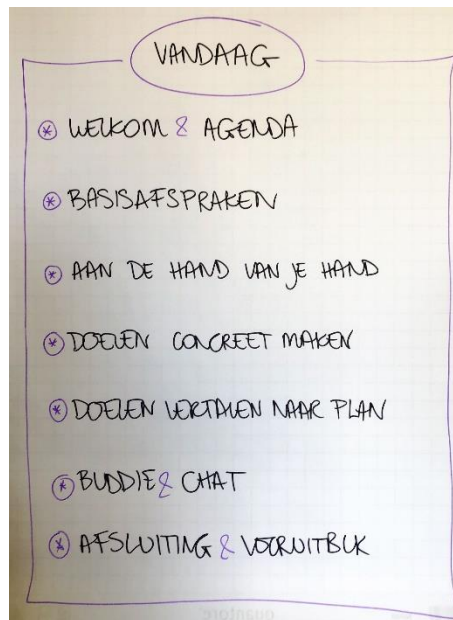 VANDAAG
WELKOM & AGENDA
BASISAFSPRAKEN
AAN DE HAND VAN JE HAND
DOELEN CONCREET MAKEN
DOELEN VERTALEN NAAR PLAN
BUDDIE & CHAT
AFSLUITING & VOORUITBLIK
quantore